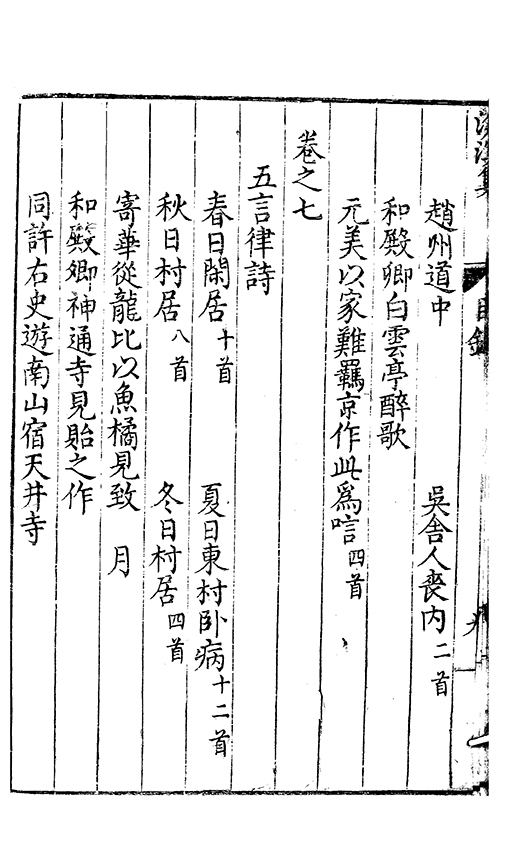 趙州道中　吳舍人喪內二首
和殿卿白雲亭醉歌
元美以家難羈京作此爲唁四首
卷之七
五言律詩
春日閑居十首　夏日東村卧病十二首
秋日村居八首　冬日村居四首
寄華從龍比以魚橘見致　月
和殿卿神通寺見貽之作
同許右史遊南山宿天井寺
目錄